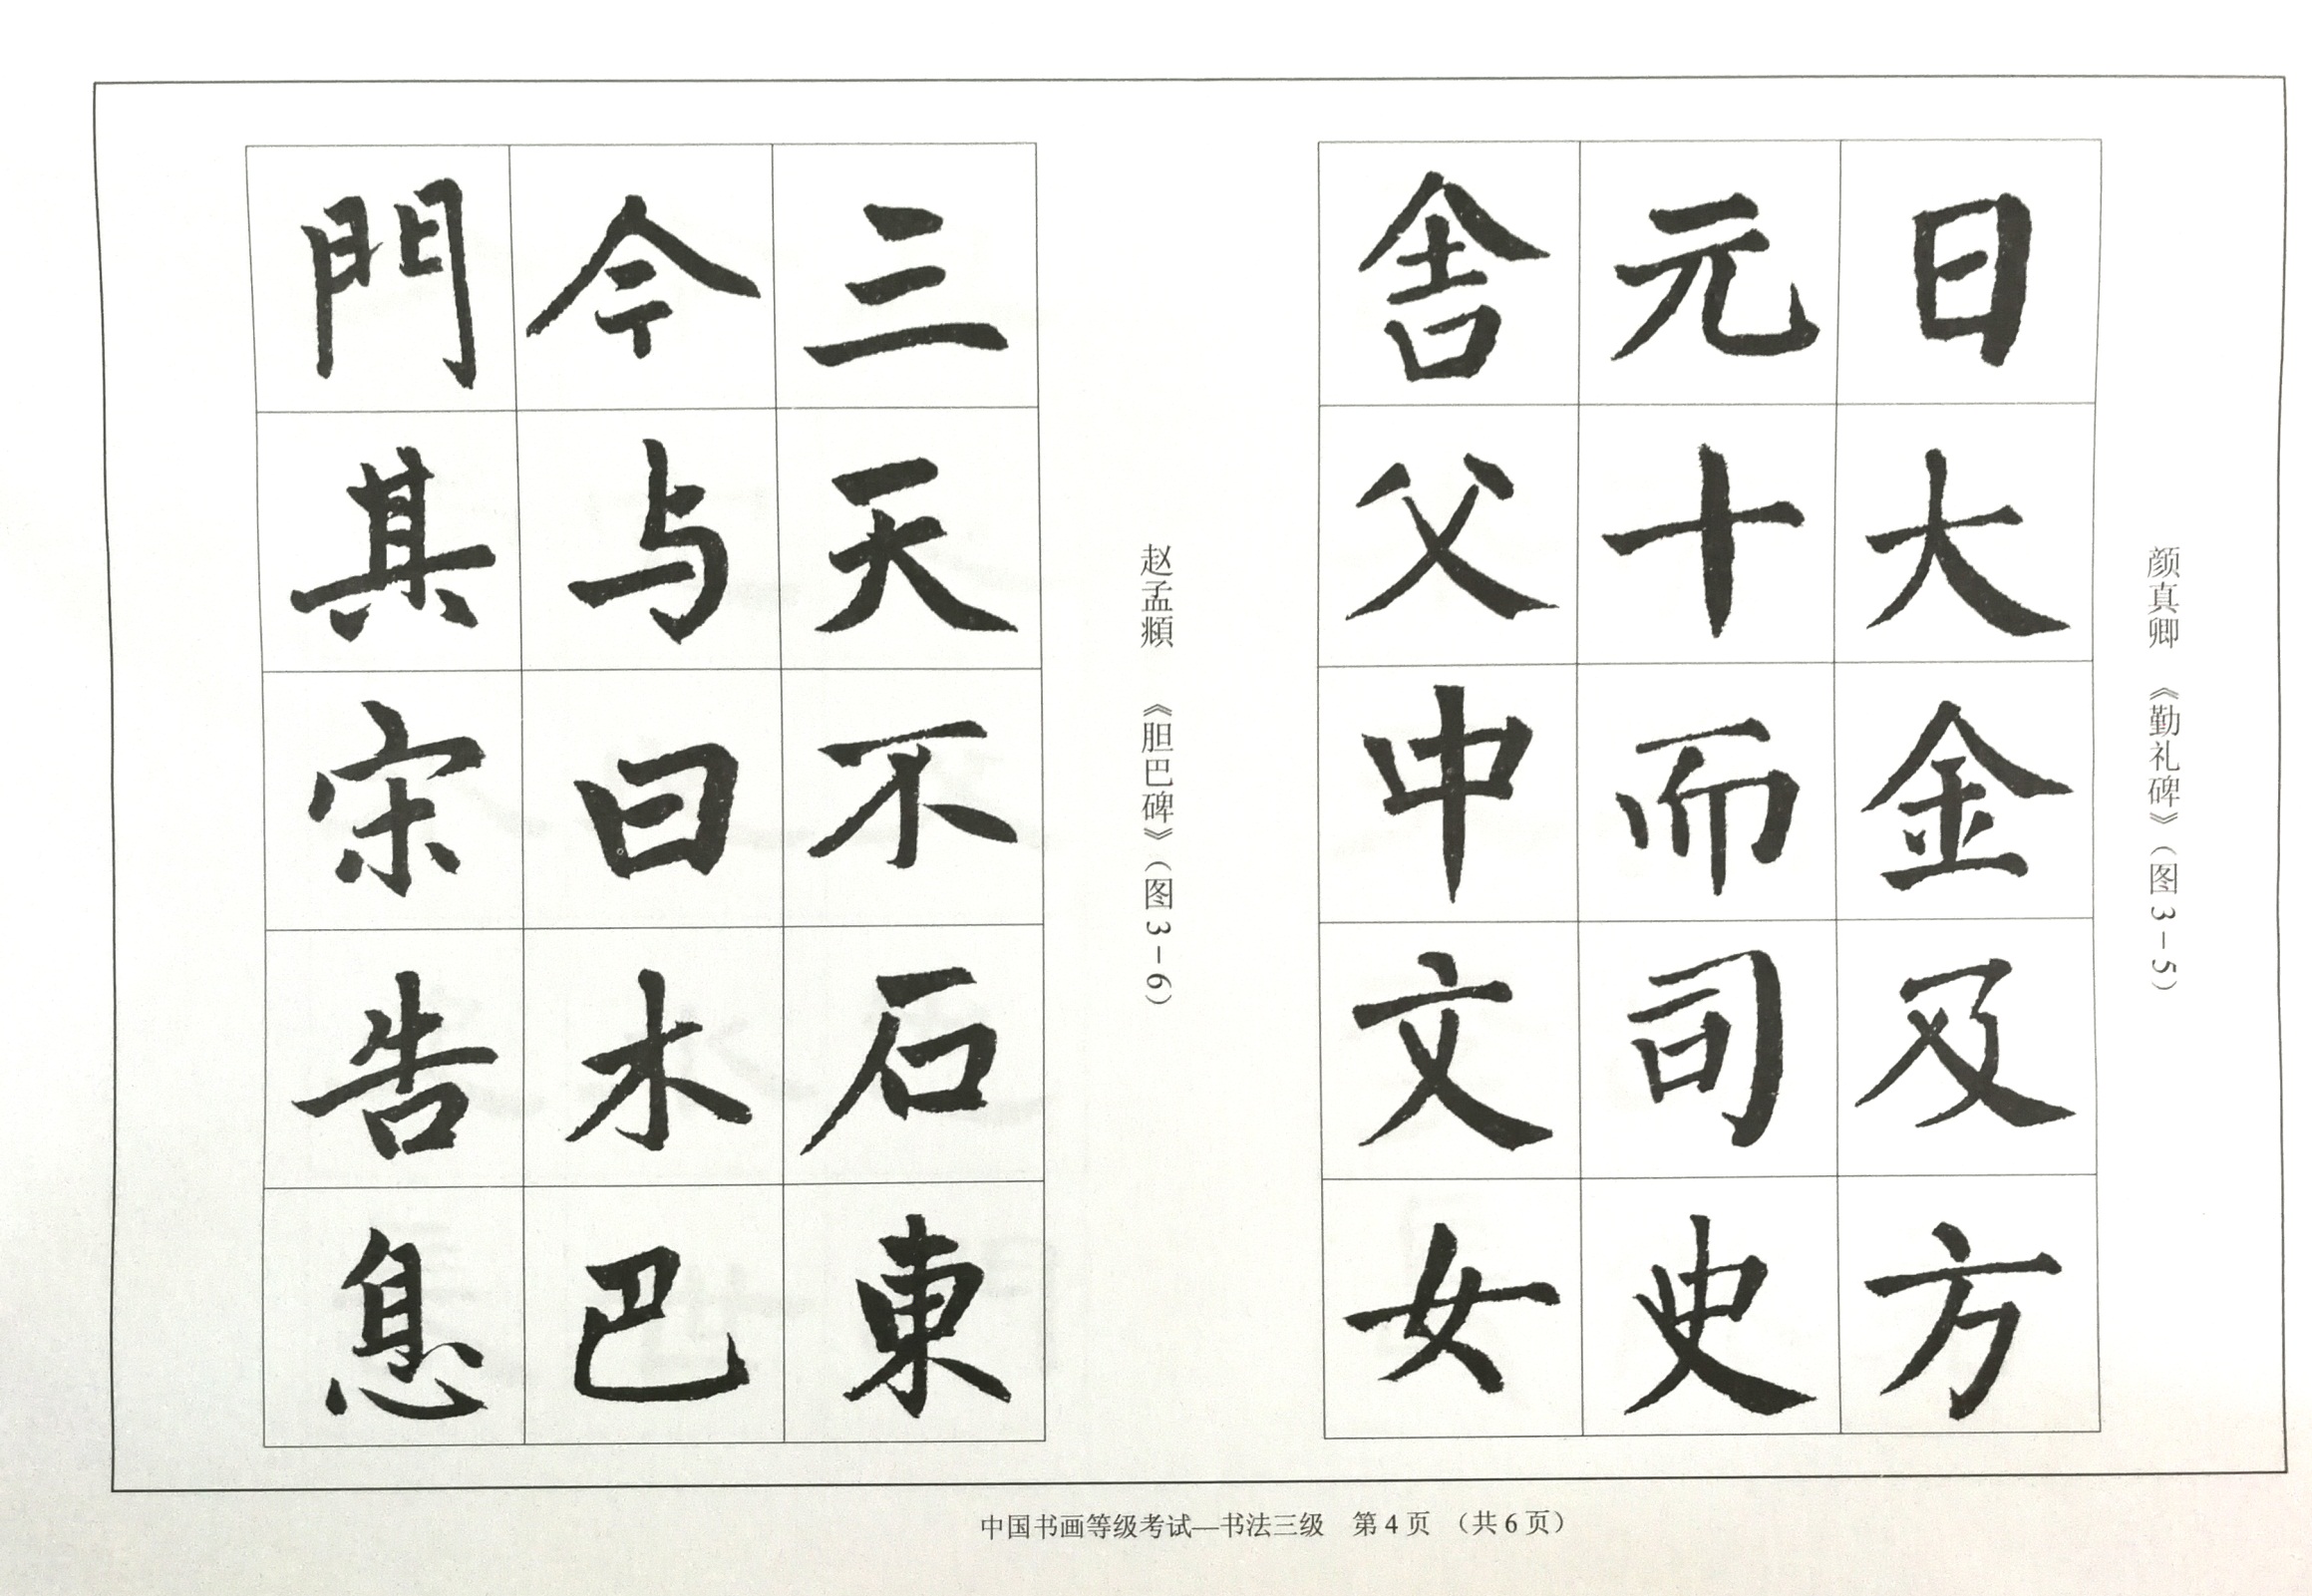 颜真卿 《勤礼碑》（图3-5）
日大金及方
元十而司史
舍父中文女
赵孟頫 《胆巴碑》（图3-6）
三天不石東
今与曰木巴
門其宋告息
中国书画等级考试—书法三级 第4页 （共6页）